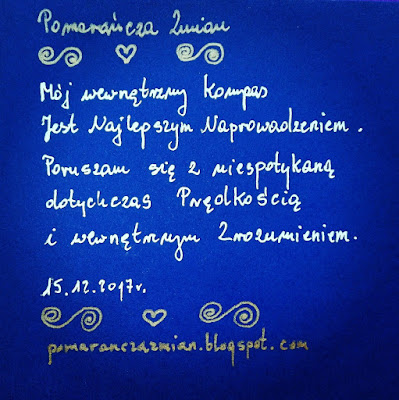 Pomarańcza Zmian
Mój wewnętrzny Kompas
Jest Najlepszym Naprowadzeniem.
Poruszam się z niespotykaną
dotychczas Prędkością
i wewnętrznym Zrozumieniem.
15.12.2017r.
pomaranczazmian.blogspot.com